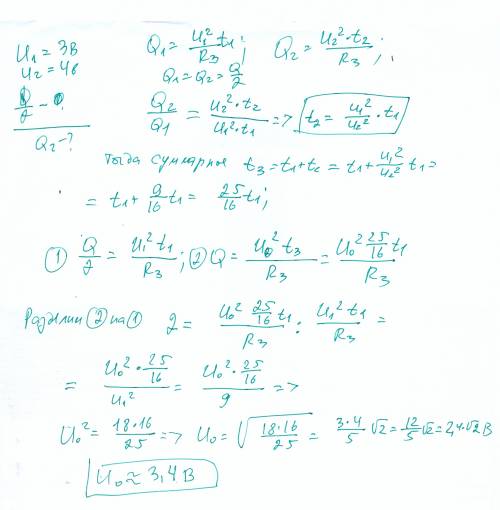 U₁ = 3В
U₂ = 4в
Q/2 -
Q₂ - ?
Q₁ = U₁² t₁ / R₃ ; Q₂ = U₂² · t₂ / R₃ ;
Q₁ = Q₂ = Q/2
Q₂/Q₁ = U₂² · t₂ / U₁² · t₁ => t₂ = U₁²/U₂² · t₁
тогда суммарное t₃ = t₁ + t₂ = t₁ + U₁²/U₂² t₁ =
= t₁ + 9/16 t₁ = 25/16 t₁ ;
① Q/2 = U₁² t₁ / R₃ ; ② Q = U₀² t₃ / R₃ = U₀² 25/16 t₁ / R₃
Разделим ② на ① 2 = U₀² 25/16 t₁ / R₃ : U₁² t₁ / R₃ =
= U₀² · 25/16 / U₁² = U₀² · 25/16 / 9 =>
U₀² = 18·16 / 25 => U₀ = √(18·16 / 25) = 3·4/5 √2 = 12/5 √2 = 2,4·√2 В
U₀ ≈ 3,4 В